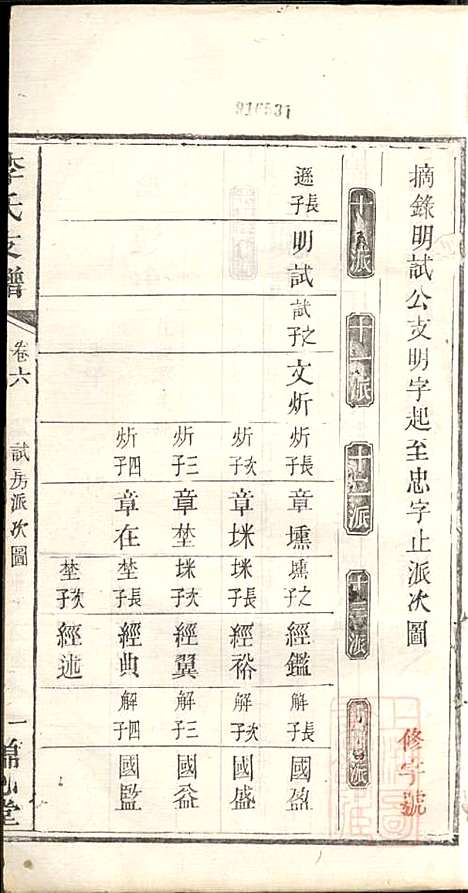 916531
摘錄明試公支明字起至忠字止派次圖
修字號
十派
十一派
十二派
十三派
派
遜長子 明試 試之子 文炘 炘長子 章壎 壎之子 經鑑 解長子 國盈
炘次子 章坔 坔長子 經裕 解次子 國盛
炘三子 章埜 坔次子 經翼 解三子 國益
炘四子 章在 埜長子 經典 解四子 國監
埜次子 經述
李氏支譜
卷六
試房派次圖
一